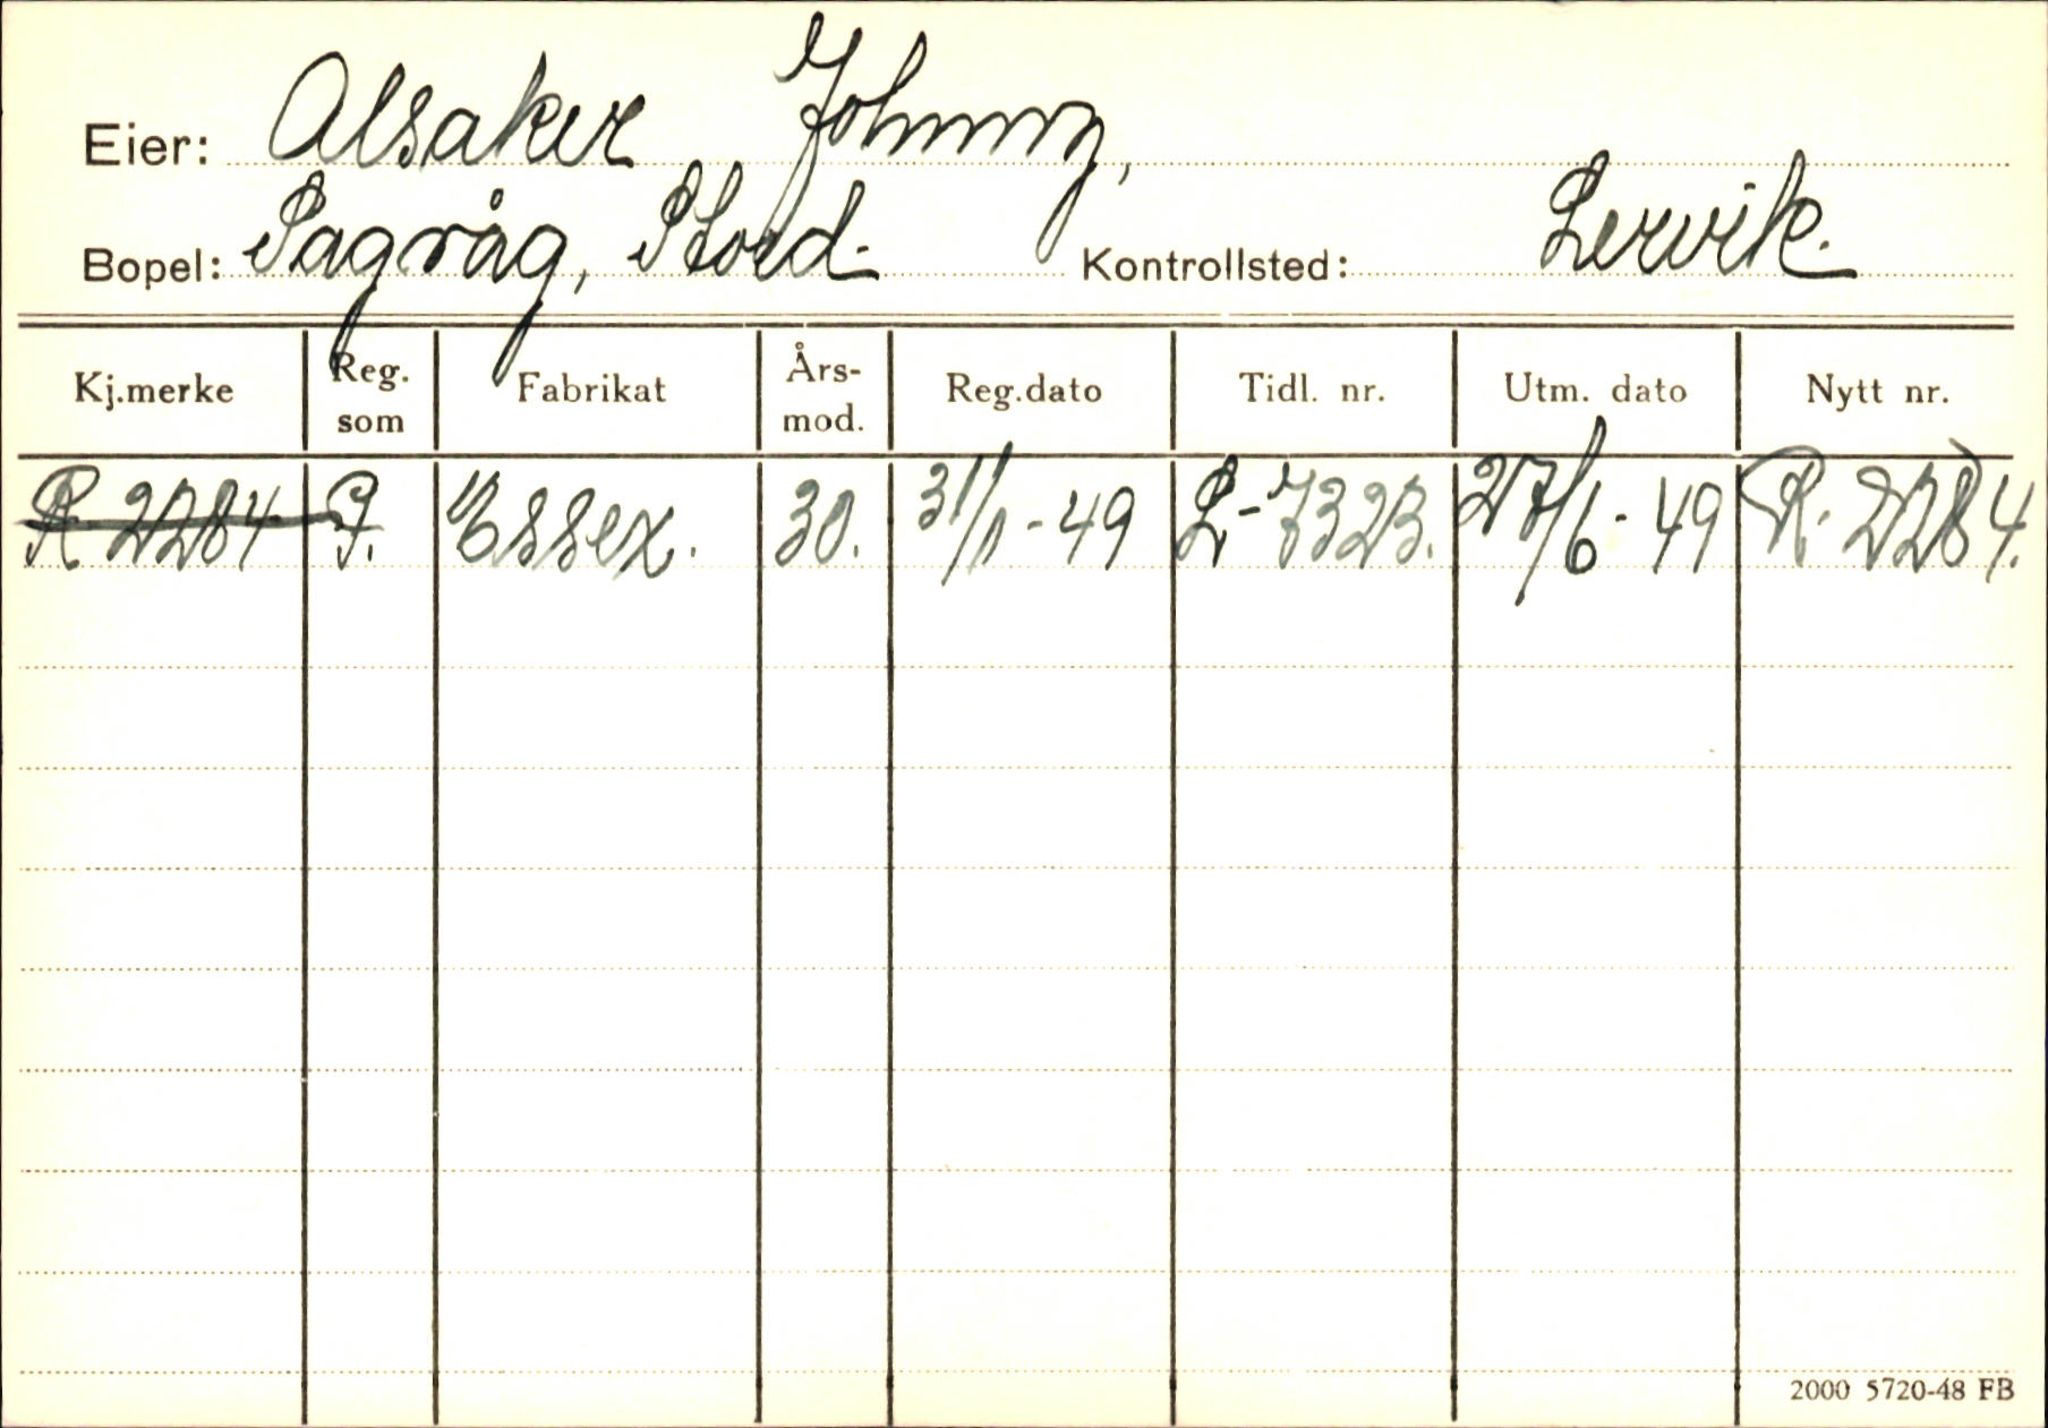 Eier: Alsaker Johnny,
Bopel: Sagvåg, Stord. Kontrollsted: Lervik.
Kj.merke Reg. som Fabrikat Års-mod. Reg.dato Tidl. nr. Utm. dato Nytt nr.
R 2284 P. Essex. 30. 31/1-49 L-7323. 27/6-49 R. 2284.
2000 5720-48 FB